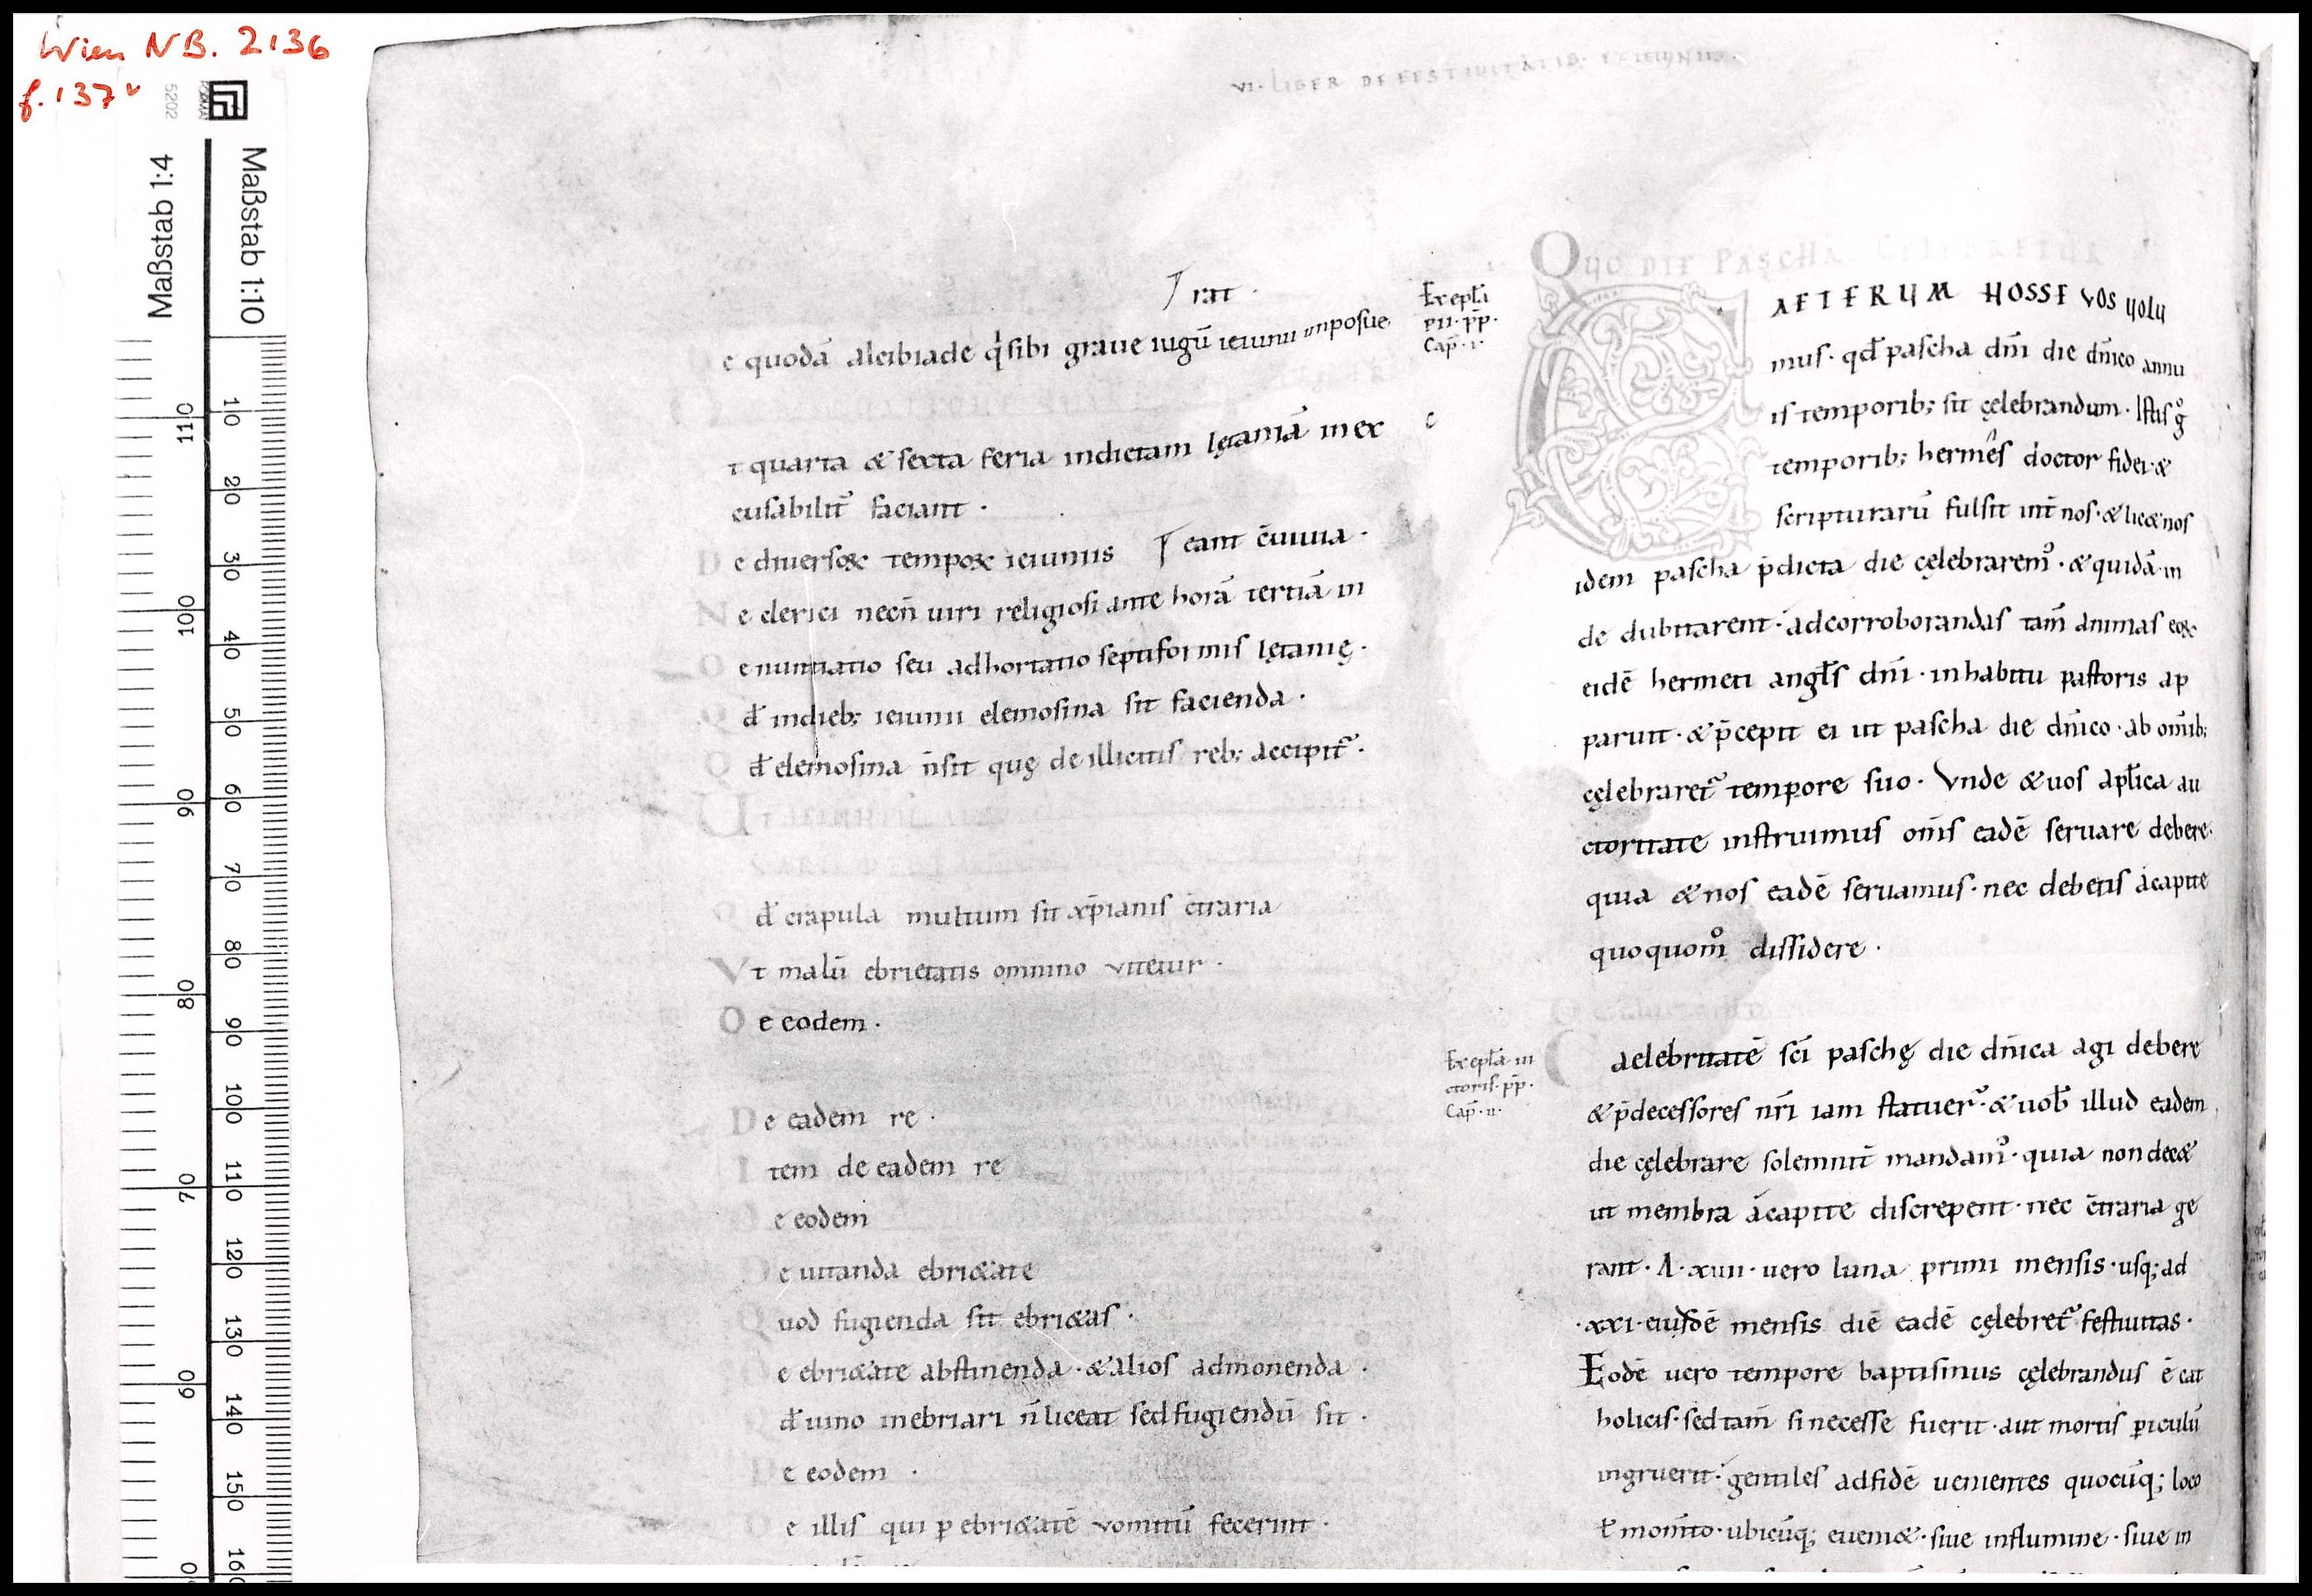 Wien NB. 2136
f. 137v
5202
Maßstab 1:4
Maßstab 1:10
110
100
90
80
70
60
10
20
30
40
50
60
70
80
90
100
110
120
130
140
150
160
VI· LIBER DE FESTIVITATIB; ET IEIUNIIS·
rat ·
e quodā alcibiade q̇ sibi graue iugū ieiunii imposue
t quarta & sexta feria indictam lętaniā inex
cusabilit̄ faciant ·
De diuersoꝝ tempoꝝ ieiuniis
eant c̄uiuia ·
Ne clerici necn̄ uiri religiosi ante horā tertiā in
Denuntiatio seu adhortatio septiformis lętanię ·
Qđ in dieb; ieiunii elemosina sit facienda ·
Qđ elemosina n̄ sit quę de illicitis reb; accipit̄ ·
Qđ crapula multum sit xp̄ianis c̄traria
Vt malū ebrietatis omnino vitetur ·
De eodem ·
De eadem re ·
Item de eadem re
De eodem
De uitanda ebri&ate
Quod fugienda sit ebri&as ·
De ebri&ate abstinenda · & alios admonenda ·
Qđ uino inebriari n̄ liceat sed fugiendū sit ·
De eodem ·
De illis qui ꝑ ebri&atē vomitū fecerint ·
Ex epl̄a
pii · p̄p ·
Cap̄ · i ·
QUO DIE PASCHA CELEBRETUR
CAETERUM NOSSE VOS uolu
mus · qđ pascha dn̄i die dn̄ico annu
is temporib; sit cęlebrandum · Istis g̊
temporib; hermês doctor fidei · &
scripturarū fulsit int̄ nos · & lic& nos
idem pascha p̄dicta die cęlebrarem᷒ · & quidā in
de dubitarent · ad corroborandas tam̄ animas eoꝝ
eidē hermeti angl̄s dn̄i · in habitu pastoris ap
paruit · & p̄cepit ei ut pascha die dn̄ico · ab om̄ib;
cęlebraret̄ tempore suo · Vnde & uos apl̄ica au
ctoritate instruimus om̄s eadē seruare debere·
quia & nos eadē seruamus · nec debetis á capite
quoquom̊ dissidere ·
Ex epl̄a · ui
ctoris · p̄p ·
Cap̄ · ii ·
Caelebritatē sc̄i paschę die dn̄ica agi debere
& p̄decessores nr̄i iam statuer̄ · & uob̄ illud eadem
die cęlebrare solemnit̄ mandam᷒ · quia non dec&
ut membra á capite discrepent · nec c̄traria ge
rant · A · xiiii · uero luna primi mensis · usq; ad
· xxi · eiusdē mensis diē eadē cęlebret̄ festiuitas ·
Eodē uero tempore baptismus cęlebrandus ē cat
holicis · sed tam̄ si necesse fuerit · aut mortis ꝑiculū
ingruerit · gentiles ad fidē uenientes quocūq; loco
ł mom̄to · ubicūq; euen&· siue in flumine · siue in